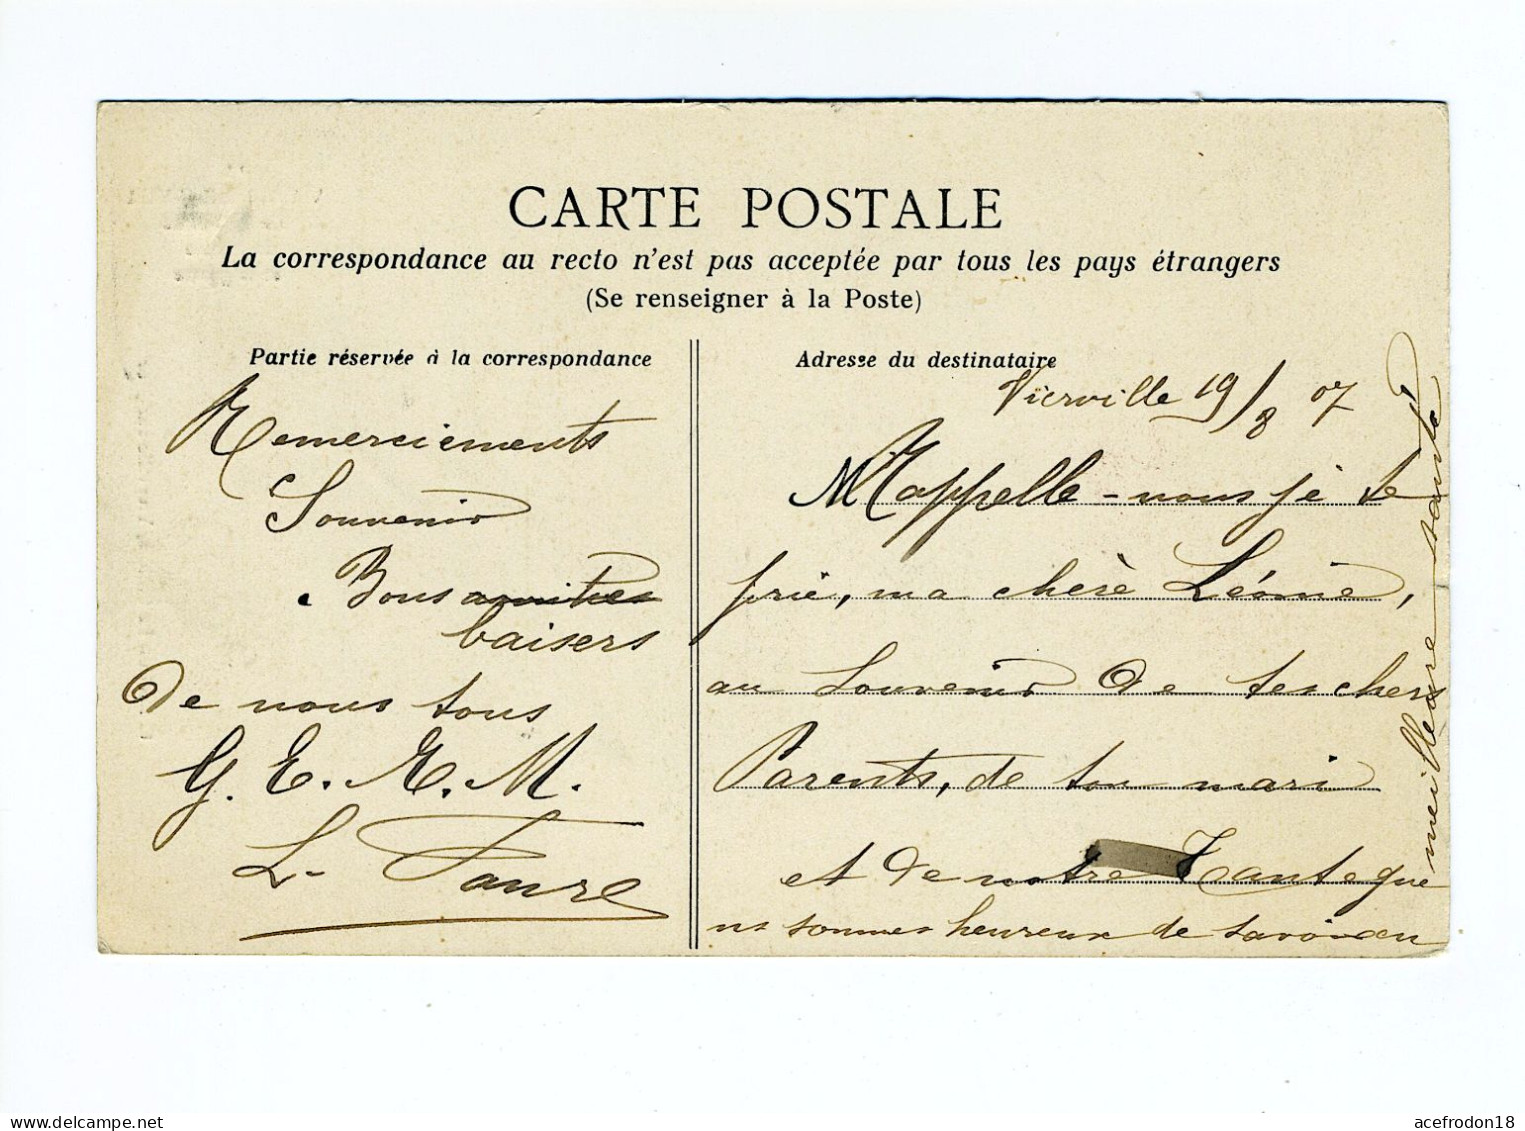 CARTE POSTALE
La correspondance au recto n'est pas acceptée par tous les pays étrangers
(Se renseigner à la Poste)
Partie réservée à la correspondance
Remerciements
Souvenir
Bons amitiés
baisers
de nous tous
G. E. E. M.
L. Faure
Adresse du destinataire
Vierville 19/8 07
Rappelle-nous je te
prie, ma chère Léonie,
au souvenir de tes chers
Parents, de ton mari
et de notre Tante que
ns sommes heureux de savoir en
meilleure santé
acefrodon18